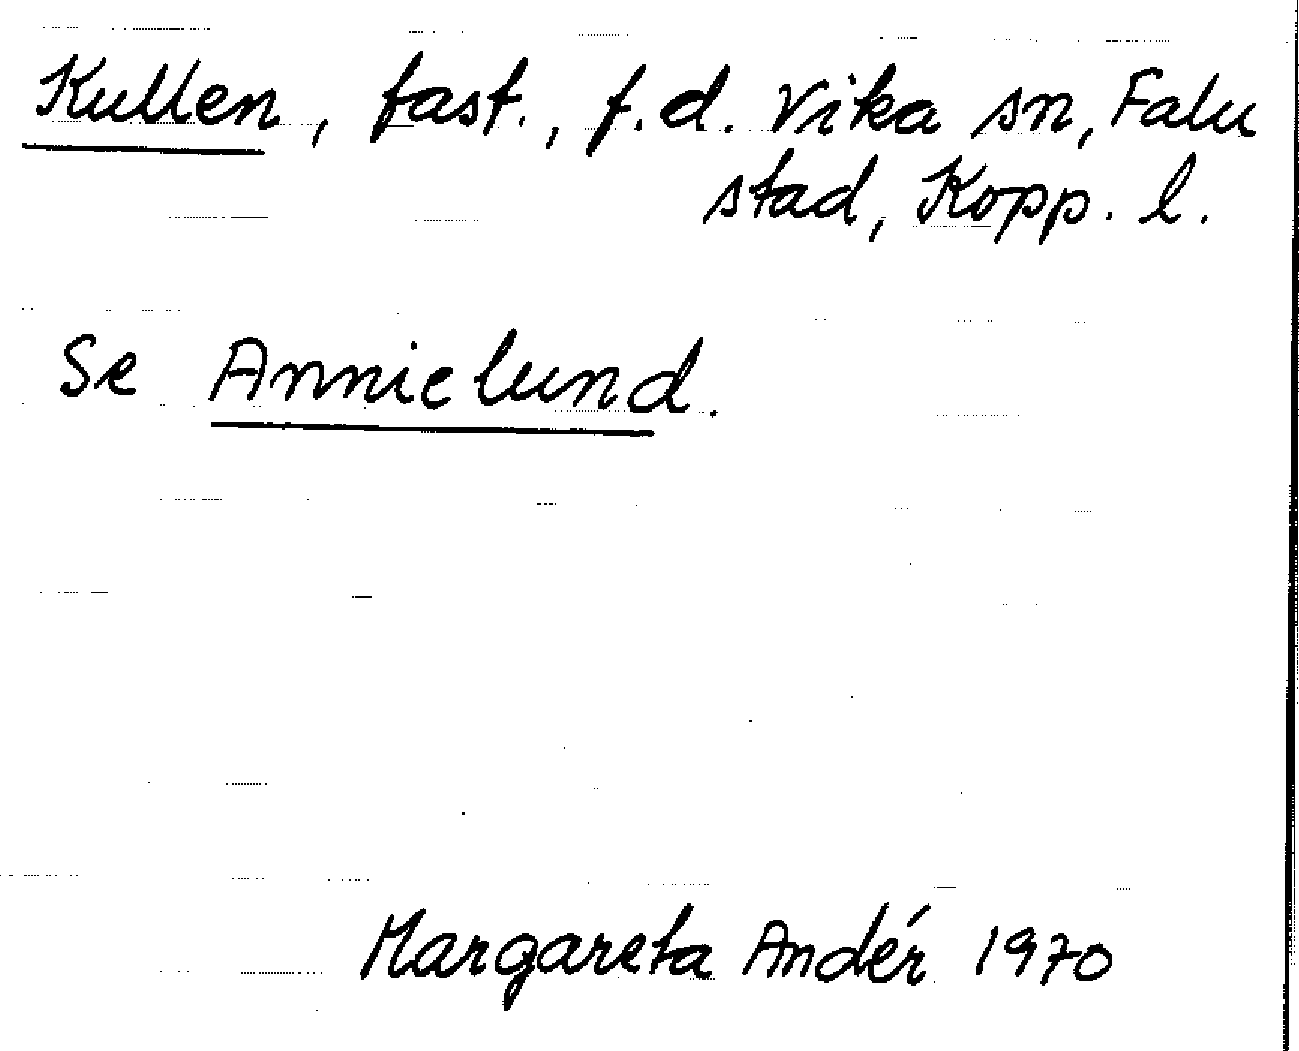 Kullen, fast., f.d. Vika sn, Falu
stad, Kopp. l.
Se Annielund.
Margareta Andér 1970